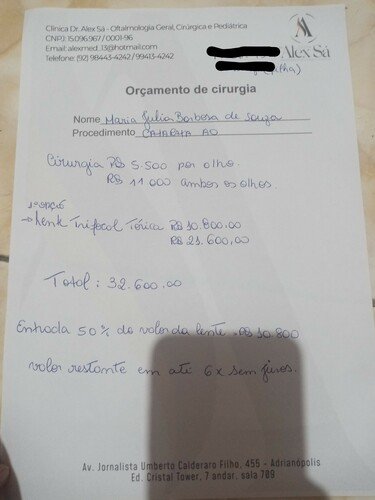 Clínica Dr. Alex Sá - Oftalmologia Geral, Cirúrgica e Pediátrica
CNPJ: 15.096.967 / 0001-96
Email: alexmed_13@hotmail.com
Telefone: (92) 98443-4242 / 99413-4242
Alex Sá
Orçamento de cirurgia
Nome Maria Julia Barbosa de Souza
Procedimento CATARATA AO
Cirurgia R$ 5.500 por olho.
R$ 11 000 ambos os olhos.
1ª opção
→ Lente Trifocal Tórica R$ 10.800.00
R$ 21.600,00
Total: 32.600.00
Entrada 50% do valor da lente. R$ 10.800
valor restante em até 6x sem juros.
Av. Jornalista Umberto Calderaro Filho, 455 - Adrianópolis
Ed. Cristal Tower, 7 andar. sala 709